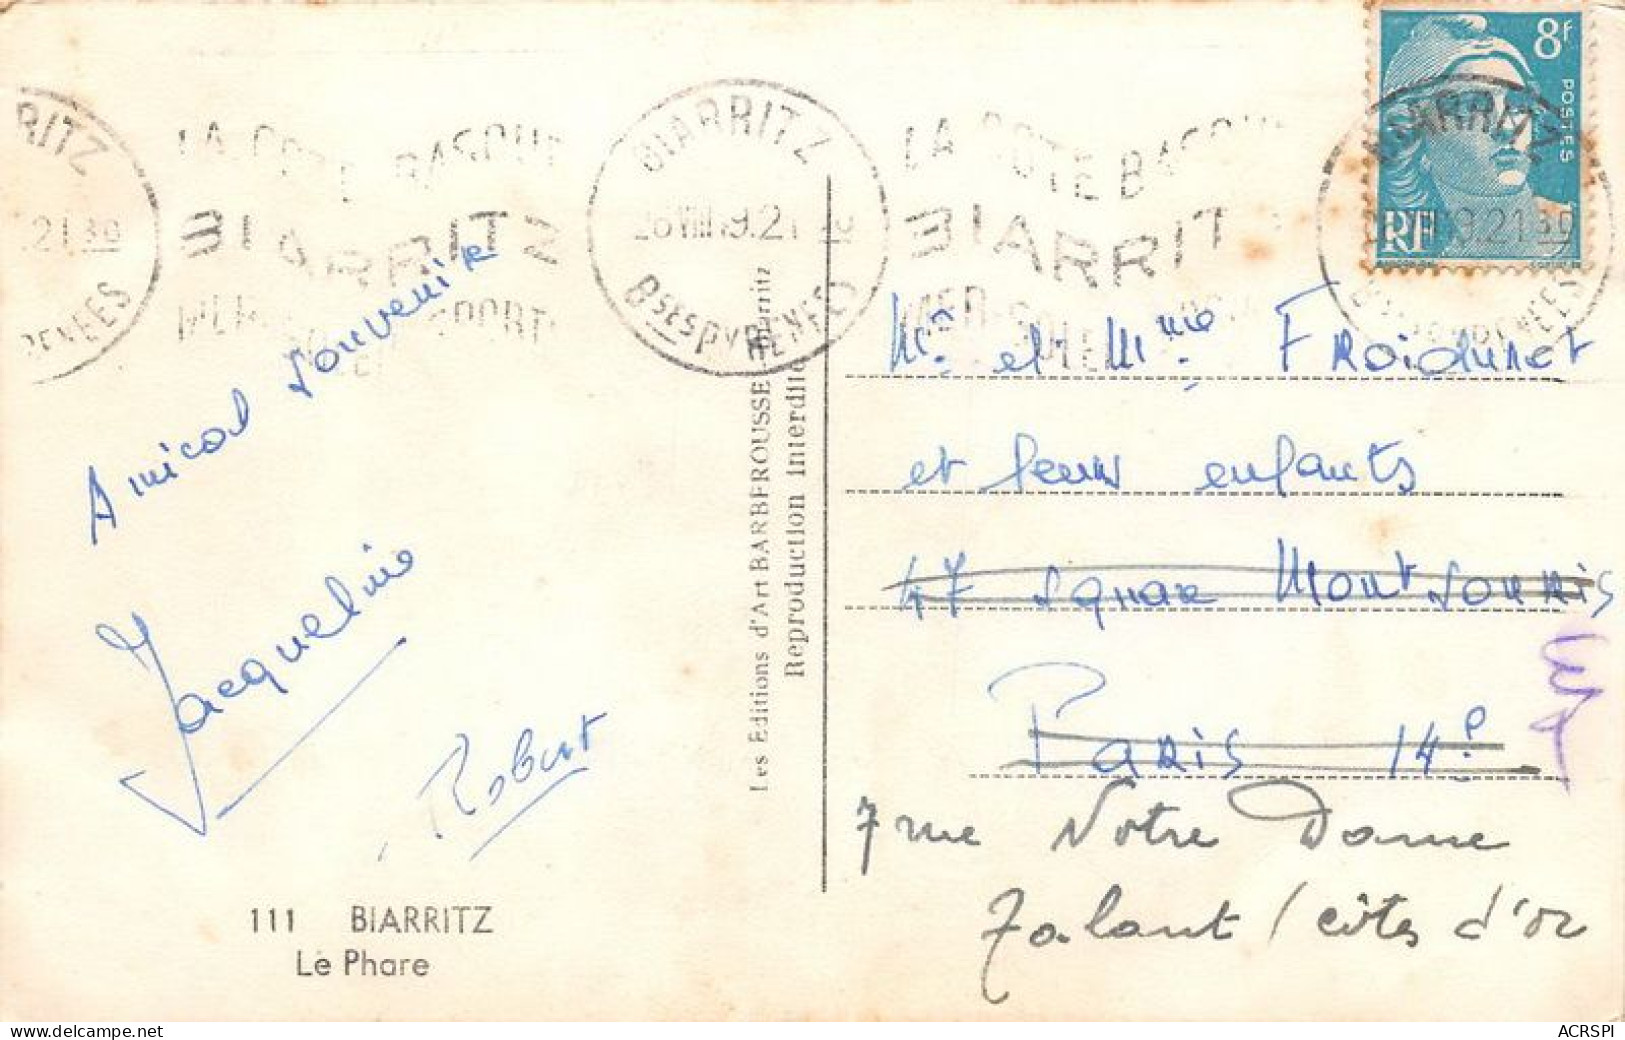 8f
POSTES
RF
RITZ
.21.30
RENEES
LA COTE BASQUE
BIARRITZ
MER SOLEIL SPORT
BIARRITZ
26 VIII 19.21 30
BSES PYRENEES
LA COTE BASQUE
BIARRITZ
MER-SOLEIL
BIARRITZ
19.21 30
Amical souvenir
Jacqueline
Robert
111 BIARRITZ
Le Phare
Les Editions d'Art BARBEROUSSE Biarritz
Reproduction interdite
Mr et Mme
et leurs enfants
47 square Montsouris
Paris 14e
7 rue Notre Dame
Talant / côtes d'or
ACRSPI